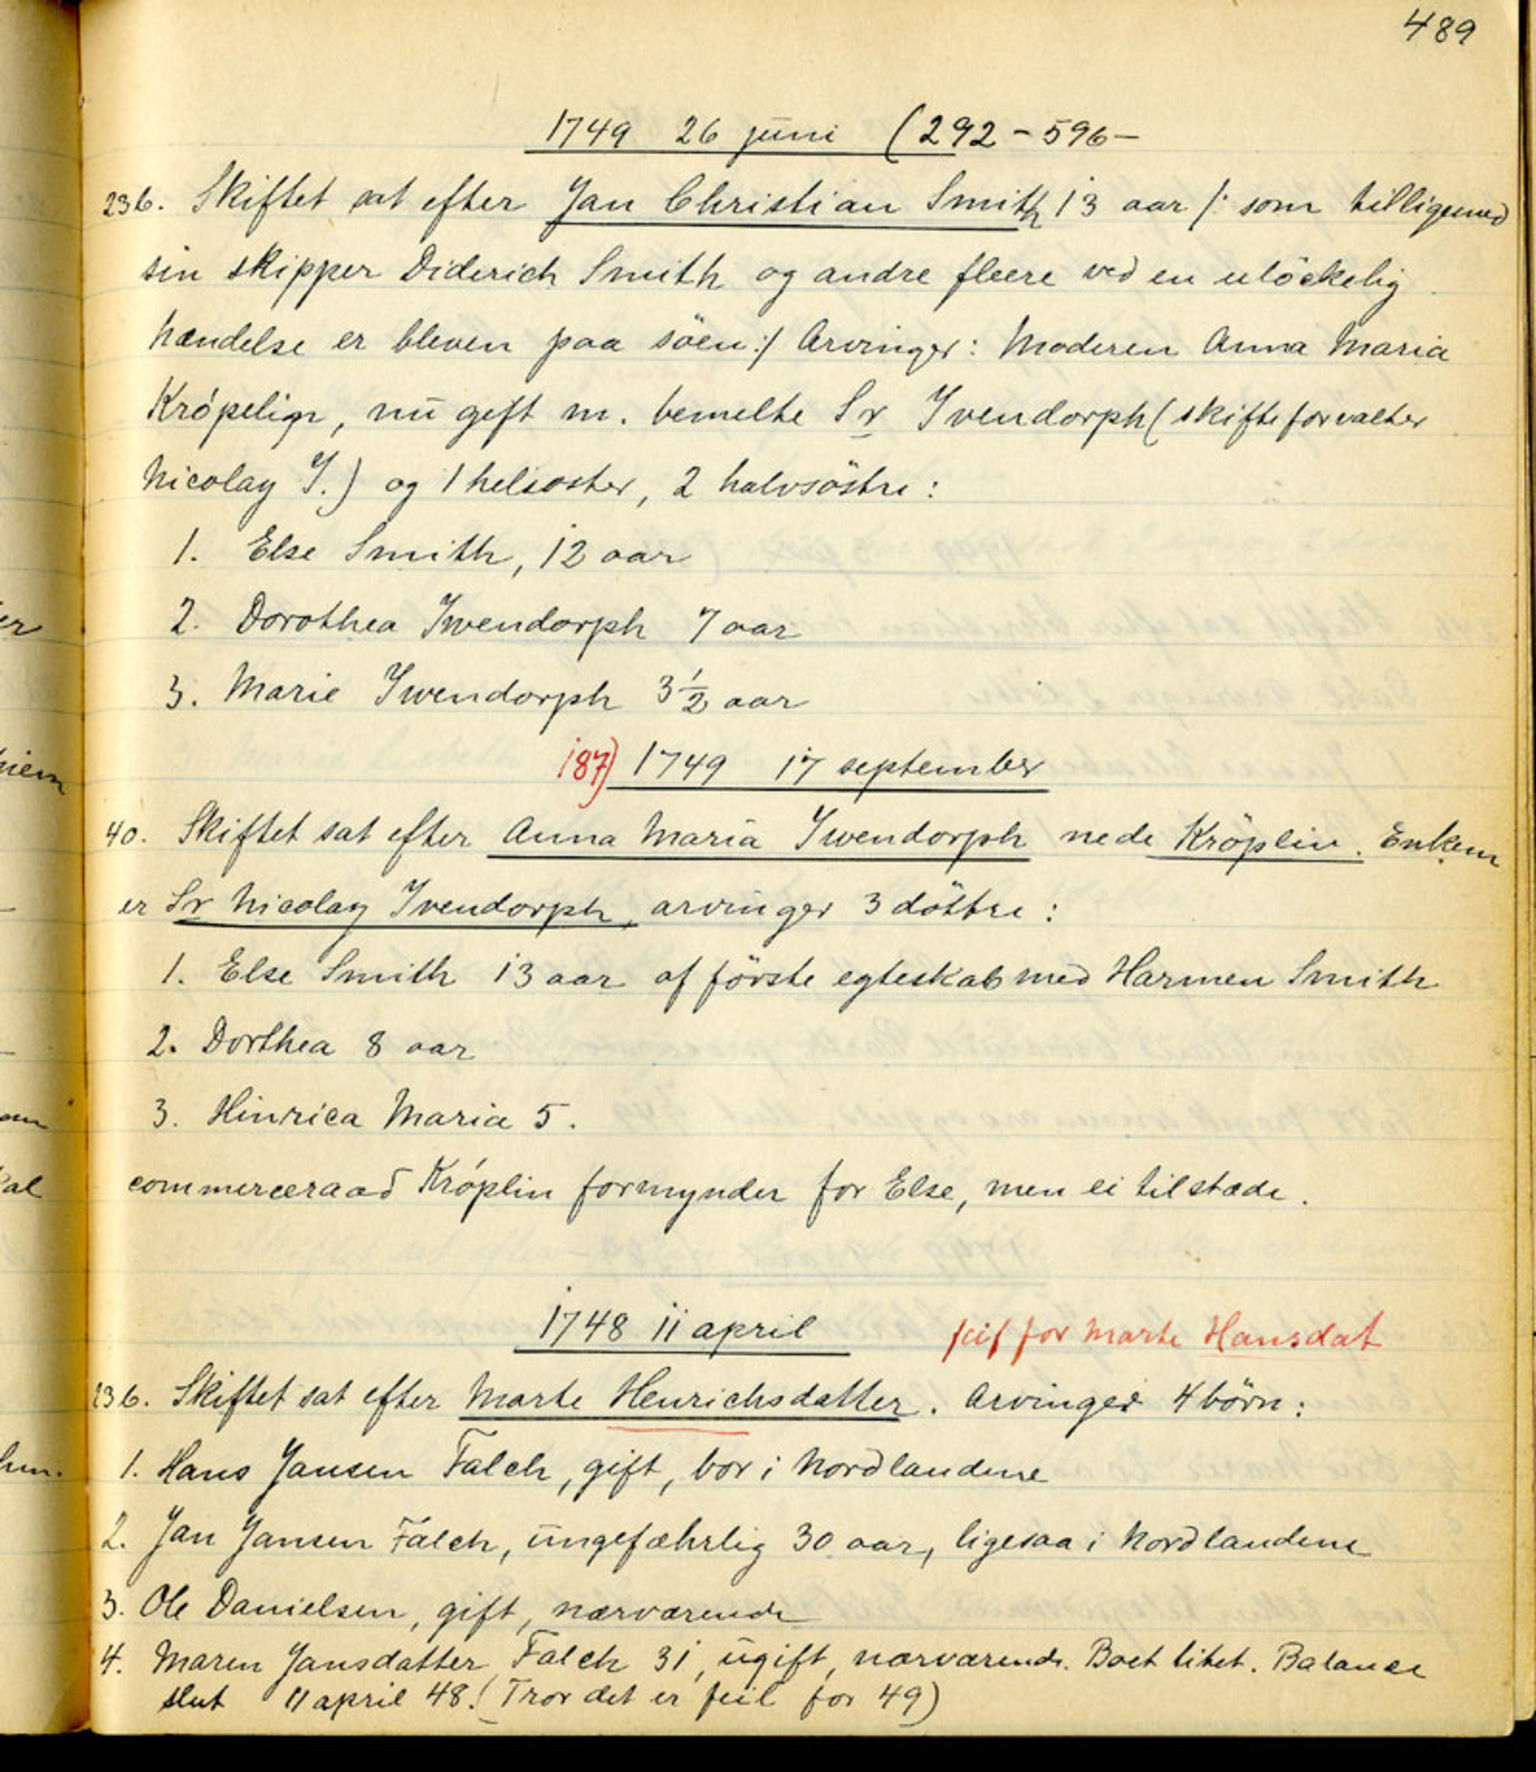 489
1749 26 juni (292-596-
236. Skiftet sat efter Jan Christian Smith 13 aar /: som tilligemed
sin skipper Diderich Smith og andre fleere ved en uløckelig
hændelse er bleven paa söen :/ Arvinger: Moderen Anna Maria
Krøpelin, nu gift m. bemelte Sr Ivendorph (skifteforvalter
Nicolay I.) og 1 helsøster, 2 halvsöstre:
1. Else Smith, 12 aar
2. Dorothea Iwendorph 7 aar
3. Marie Iwendorph 3½ aar
187) 1749 17 september
40. Skiftet sat efter Anna Maria Iwendorph nede Kröplin. Enkem
er Sr Nicolay Ivendorph, arvinger 3 döttre:
1. Else Smith 13 aar af förste egteskab med Harmen Smith
2. Dorthea 8 aar
3. Hinrica Maria 5.
commerceraad Krøplin formynder for Else, men ei tilstæde.
1748 11 april feil for Marte Hansdat
236. Skiftet sat efter Marte Henrichsdatter. Arvinger 4 börn:
1. Hans Jansen Falch, gift, bor i Nordlandene
2. Jan Jansen Falch, ungefæhrlig 30 aar, ligesaa i Nordlandene
3. Ole Danielsen, gift, nærværende
4. Maren Jansdatter Falch 31, ugift, nærværende. Boet litet. Balance
slut 11 april 48. (Tror det er feil for 49)